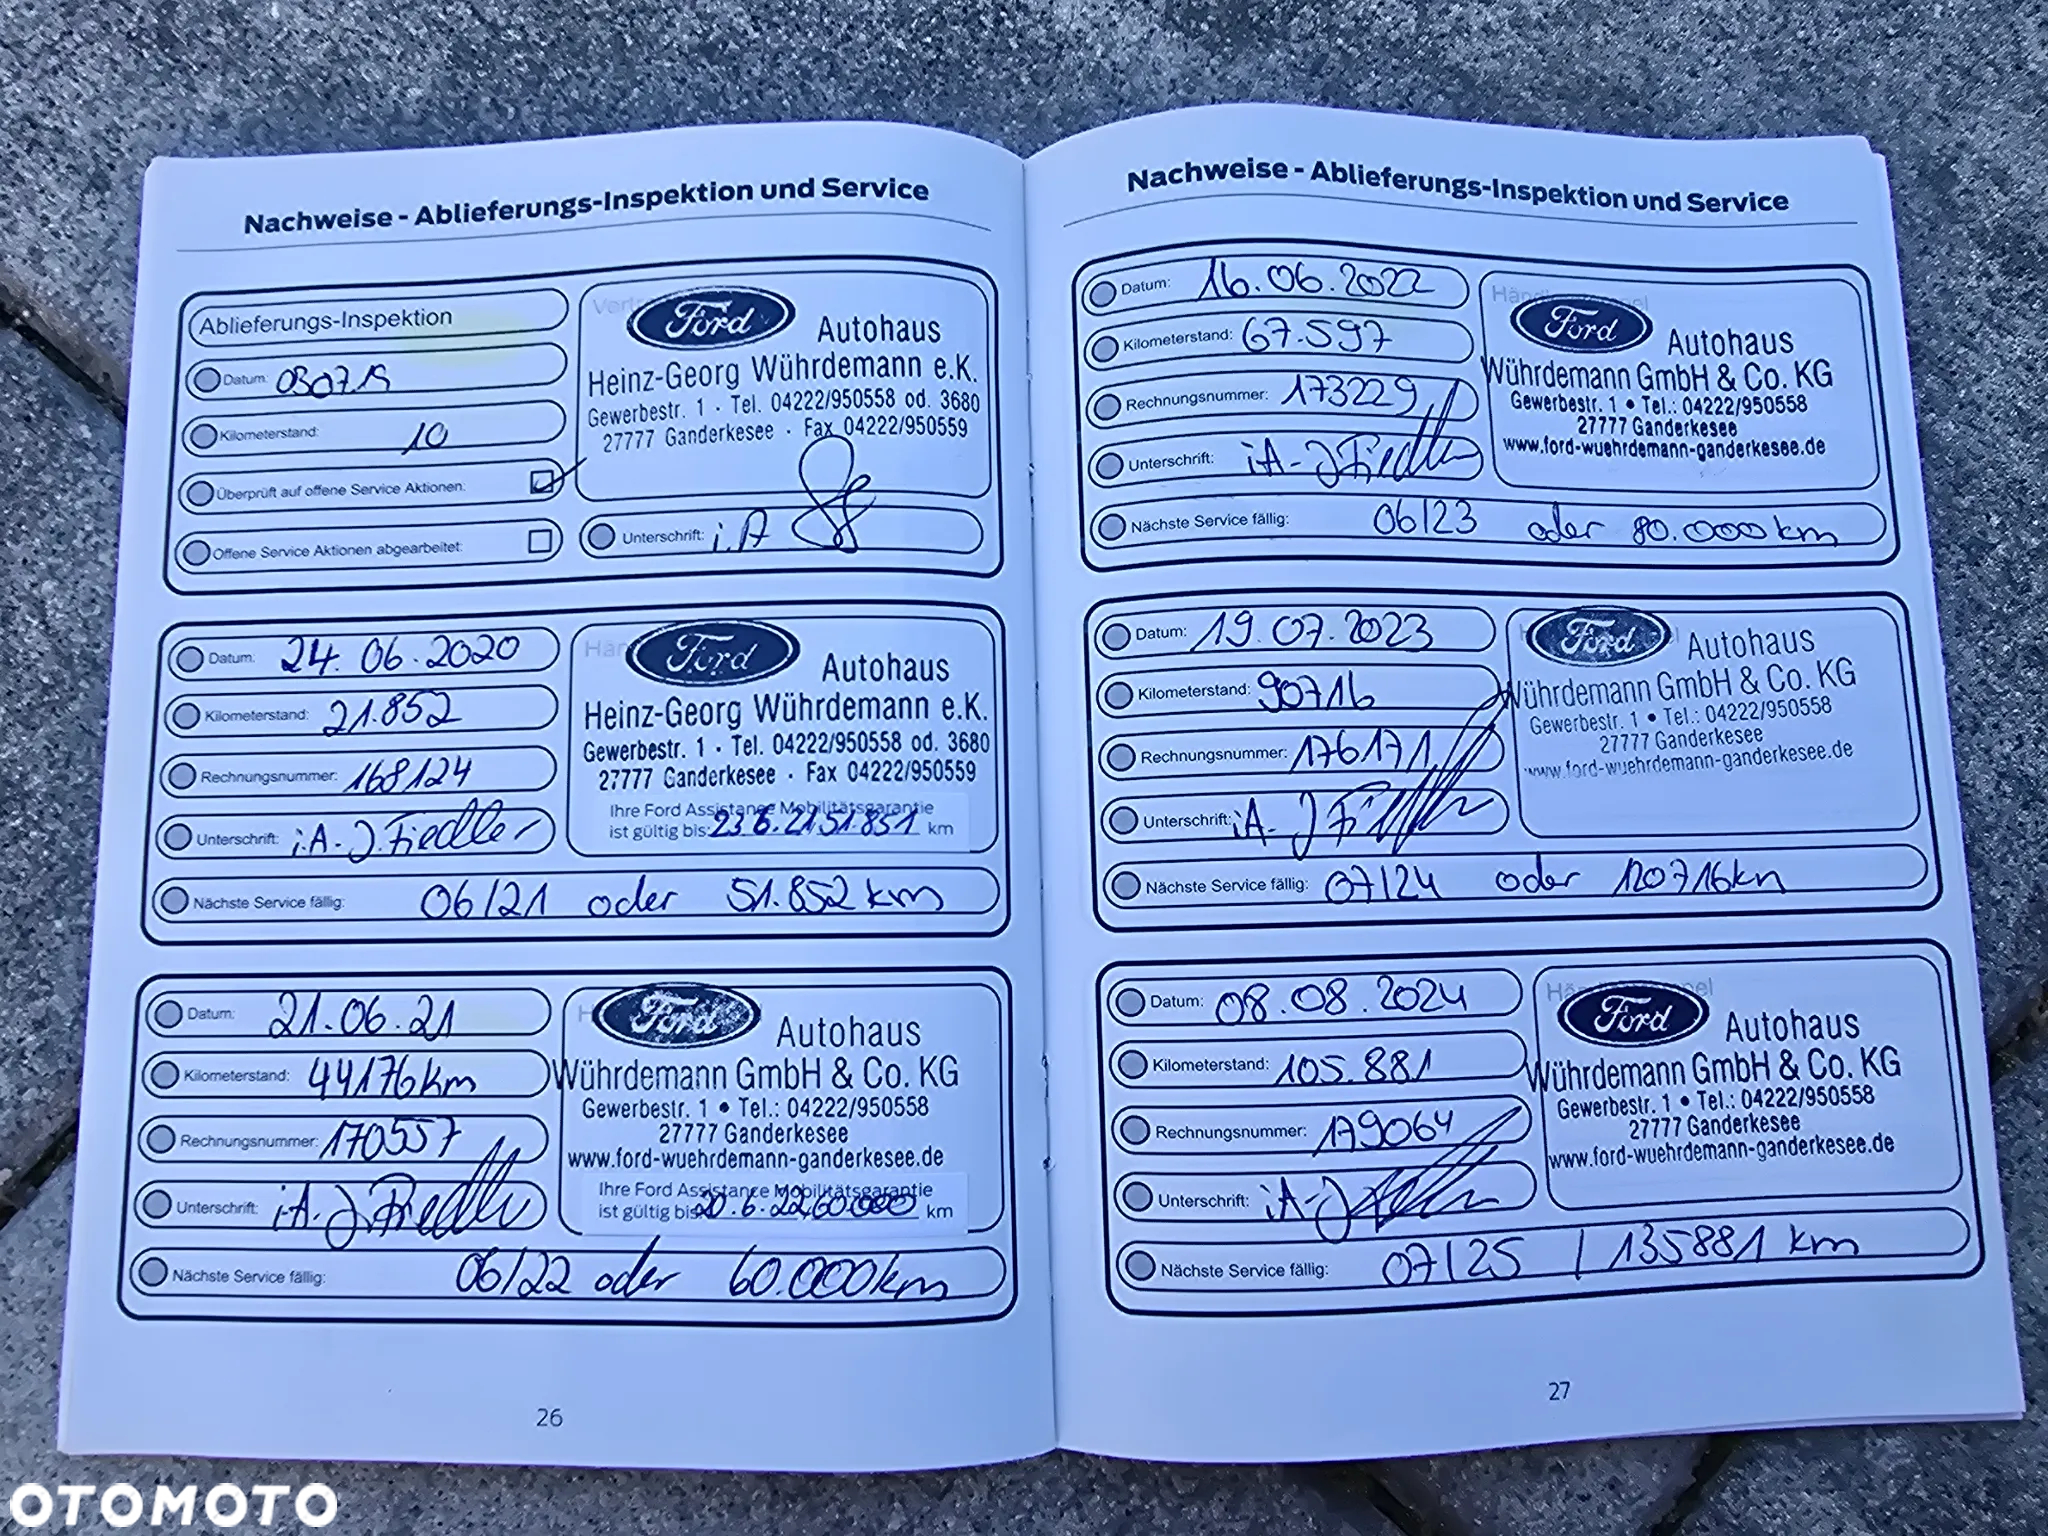 Nachweise - Ablieferungs-Inspektion und Service
Ablieferungs-Inspektion
Datum: 030719
Kilometerstand: 10
Überprüft auf offene Service Aktionen:
Offene Service Aktionen abgearbeitet:
Ford
Autohaus
Heinz-Georg Wührdemann e.K.
Gewerbestr. 1 · Tel. 04222/950558 od. 3680
27777 Ganderkesee · Fax 04222/950559
Unterschrift: i.A
Datum: 24.06.2020
Kilometerstand: 21.852
Rechnungsnummer: 168124
Unterschrift: i.A. J. Fiedler
Ford
Autohaus
Heinz-Georg Wührdemann e.K.
Gewerbestr. 1 · Tel. 04222/950558 od. 3680
27777 Ganderkesee · Fax 04222/950559
Ihre Ford Assistance Mobilitätsgarantie
ist gültig bis: 23.6.21, 51.851 km
Nächste Service fällig: 06/21 oder 51.852 km
Datum: 21.06.21
Kilometerstand: 44176km
Rechnungsnummer: 170557
Unterschrift: i.A. J. Fiedler
Ford
Autohaus
Wührdemann GmbH & Co. KG
Gewerbestr. 1 • Tel.: 04222/950558
27777 Ganderkesee
www.ford-wuehrdemann-ganderkesee.de
Ihre Ford Assistance Mobilitätsgarantie
ist gültig bis: 20.6.22, 60.000 km
Nächste Service fällig: 06/22 oder 60.000km
26
Nachweise - Ablieferungs-Inspektion und Service
Datum: 16.06.2022
Kilometerstand: 67.597
Rechnungsnummer: 173229
Unterschrift: i.A. J. Fiedler
Ford
Autohaus
Wührdemann GmbH & Co. KG
Gewerbestr. 1 • Tel.: 04222/950558
27777 Ganderkesee
www.ford-wuehrdemann-ganderkesee.de
Nächste Service fällig: 06/23 oder 80.000km
Datum: 19.07.2023
Kilometerstand: 90716
Rechnungsnummer: 176171
Unterschrift: i.A. J. Fiedler
Ford
Autohaus
Wührdemann GmbH & Co. KG
Gewerbestr. 1 • Tel.: 04222/950558
27777 Ganderkesee
www.ford-wuehrdemann-ganderkesee.de
Nächste Service fällig: 07/24 oder 120716km
Datum: 08.08.2024
Kilometerstand: 105.881
Rechnungsnummer: 179064
Unterschrift: i.A. J.
Ford
Autohaus
Wührdemann GmbH & Co. KG
Gewerbestr. 1 • Tel.: 04222/950558
27777 Ganderkesee
www.ford-wuehrdemann-ganderkesee.de
Nächste Service fällig: 07/25 / 135881 km
27
OTOMOTO